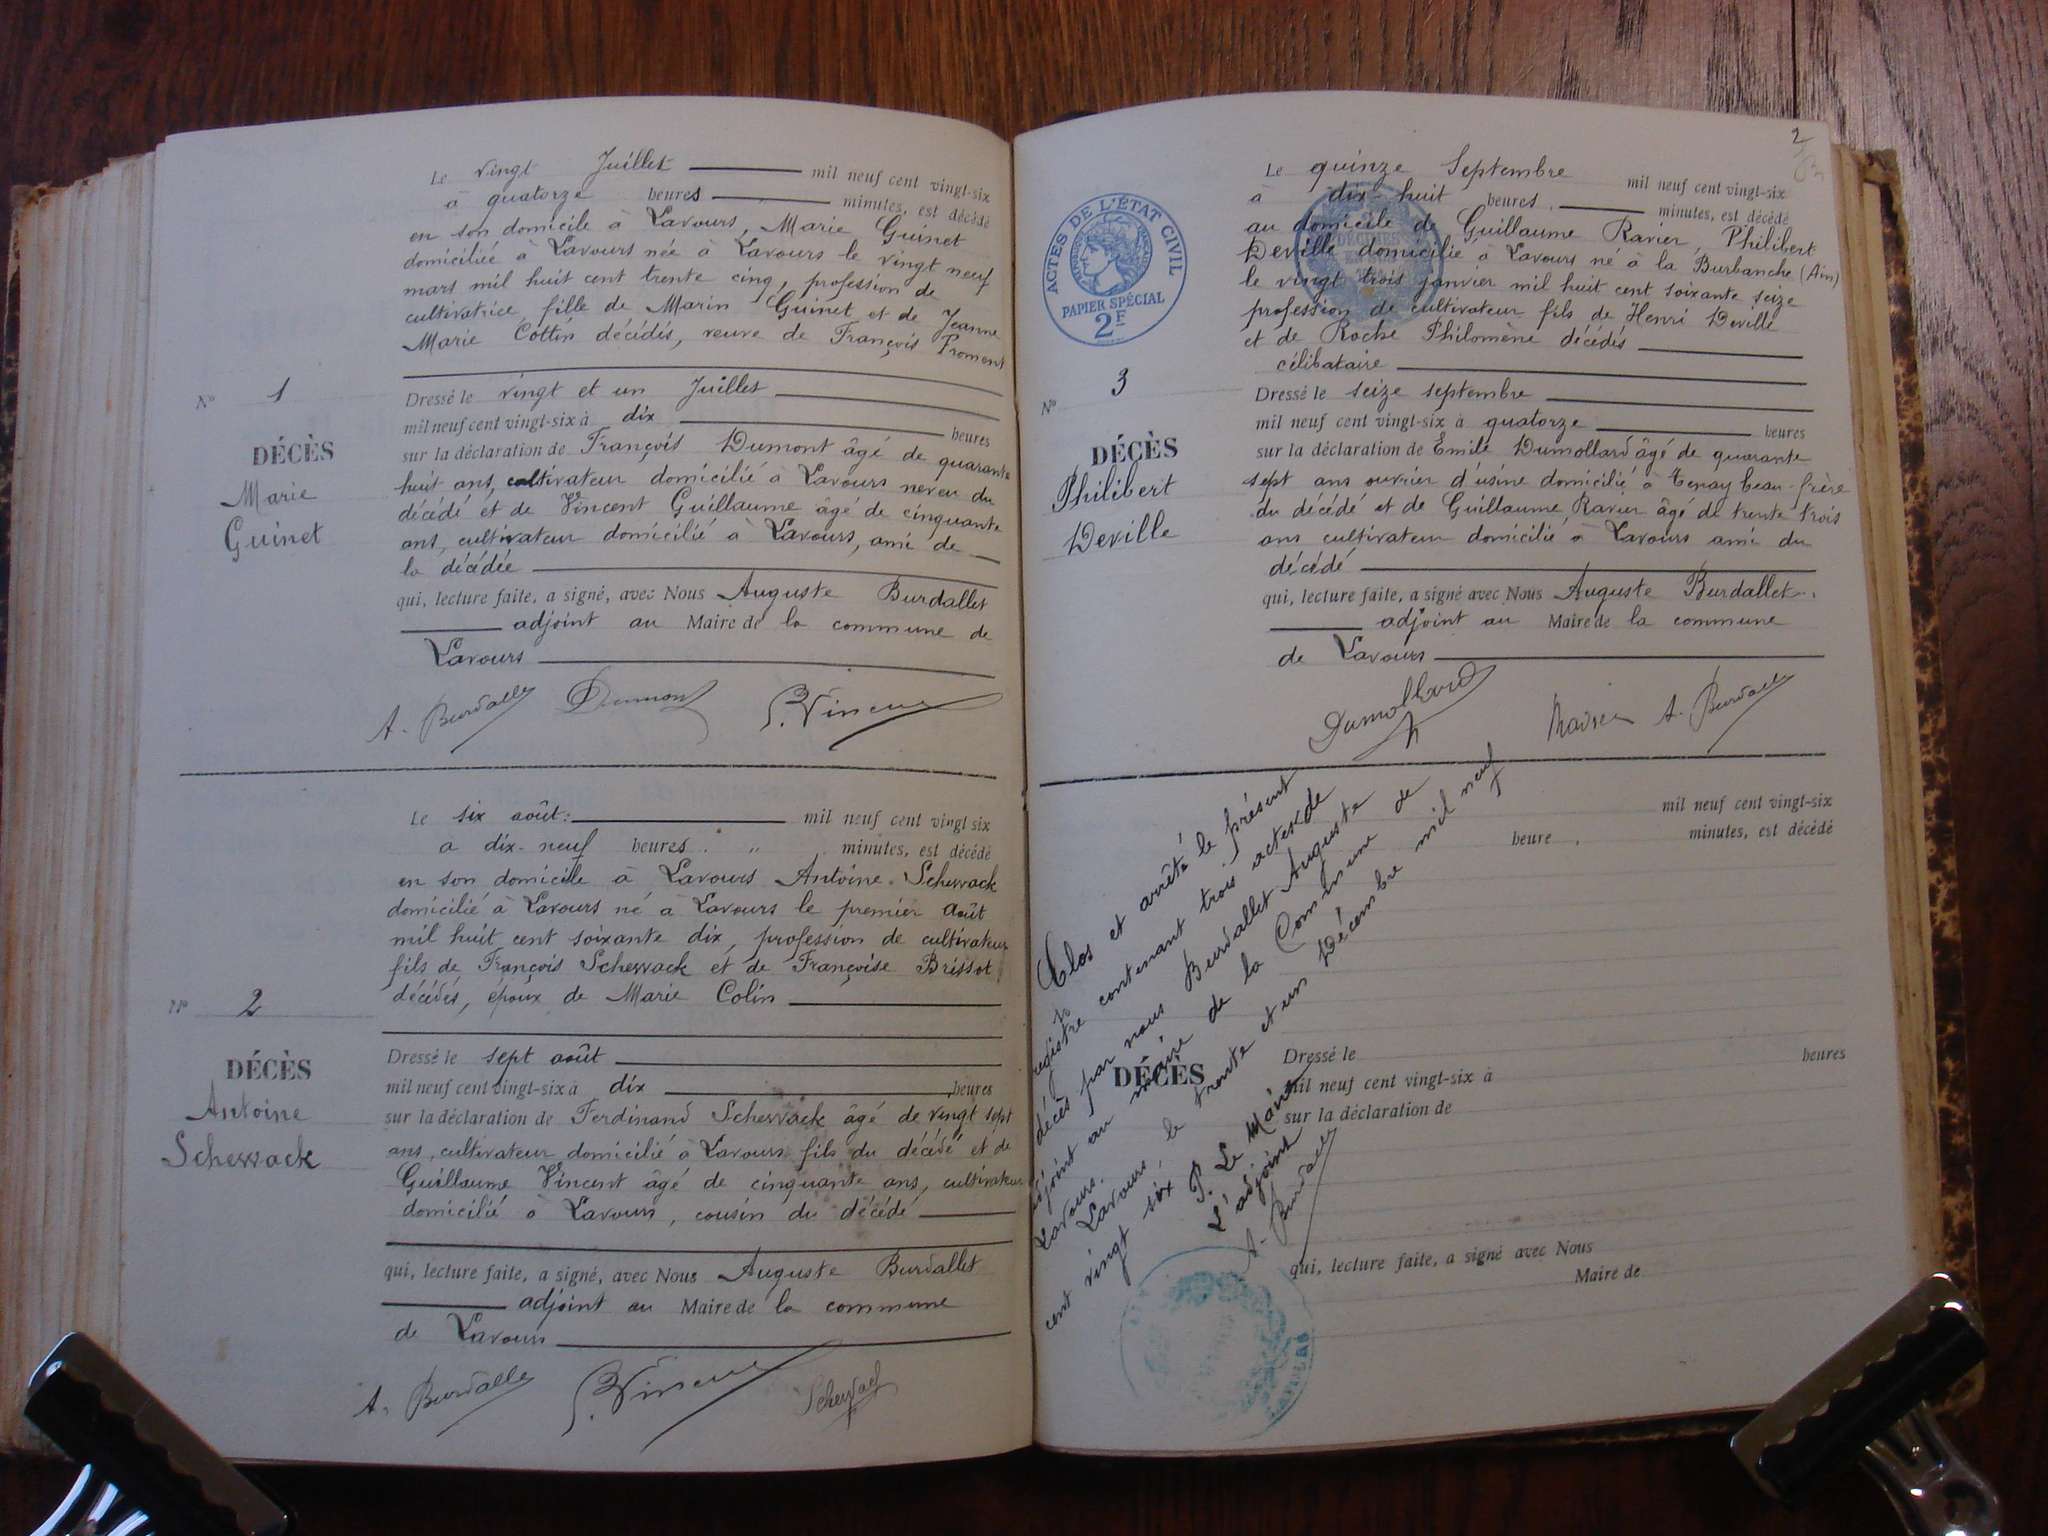 Le vingt Juillet mil neuf cent vingt-six
à quatorze heures " minutes, est décédé
en son domicile à Lavours, Marie Guinet
domiciliée à Lavours née à Lavours le vingt neuf
mars mil huit cent trente cinq, profession de
cultivatrice, fille de Marin Guinet et de Jeanne
Marie Cottin décédés, veuve de François Froment
N° 1
DÉCÈS
Marie
Guinet
Dressé le vingt et un Juillet
mil neuf cent vingt-six à dix heures
sur la déclaration de François Dumont âgé de quarante
huit ans, cultivateur domicilié à Lavours neveu du
décédé et de Vincent Guillaume âgé de cinquante
ans, cultivateur domicilié à Lavours, ami de
la décédée
qui, lecture faite, a signé, avec Nous Auguste Burdallet
adjoint au Maire de la commune de
Lavours
A. Burdallet Dumont G. Vincent
Le six août: mil neuf cent vingt six
à dix-neuf heures " minutes, est décédé
en son domicile à Lavours Antoine Schewack
domicilié à Lavours né à Lavours le premier août
mil huit cent soixante dix, profession de cultivateur
fils de François Schewack et de Françoise Brissot
décédés, époux de Marie Colin
N° 2
DÉCÈS
Antoine
Schewack
Dressé le sept août
mil neuf cent vingt-six à dix heures
sur la déclaration de Ferdinand Schewack âgé de vingt sept
ans, cultivateur domicilié à Lavours fils du décédé et de
Guillaume Vincent âgé de cinquante ans, cultivateur
domicilié à Lavours, cousin du décédé
qui, lecture faite, a signé, avec Nous Auguste Burdallet
adjoint au Maire de la commune
de Lavours
A. Burdallet G. Vincent Schewack
2
ACTES DE L'ÉTAT CIVIL
PAPIER SPÉCIAL
2F
Le quinze Septembre mil neuf cent vingt-six
à dix-huit heures minutes, est décédé
au domicile de Guillaume Ravier, Philibert
Deville domicilié à Lavours né à la Burbanche (Ain)
le vingt trois janvier mil huit cent soixante seize
profession de cultivateur fils de Henri Deville
et de Roche Philomène décédés
célibataire
N° 3
DÉCÈS
Philibert
Deville
Dressé le seize septembre
mil neuf cent vingt-six à quatorze heures
sur la déclaration de Emile Dumollard âgé de quarante
sept ans ouvrier d'usine domicilié à Tenay beau-frère
du décédé et de Guillaume Ravier âgé de trente trois
ans cultivateur domicilié à Lavours ami du
décédé
qui, lecture faite, a signé avec Nous Auguste Burdallet
adjoint au Maire de la commune
de Lavours
Dumollard Ravier A. Burdallet
Clos et arrêté le présent
registre contenant trois actes de
décès par nous Burdallet Auguste
adjoint au maire de la Commune de
Lavours.
Lavours le trente et un Décembre mil neuf
cent vingt six
P. Le Maire
L'adjoint
A. Burdallet
mil neuf cent vingt-six
heure minutes, est décédé
DÉCÈS
Dressé le heures
mil neuf cent vingt-six à
sur la déclaration de
qui, lecture faite, a signé avec Nous
Maire de